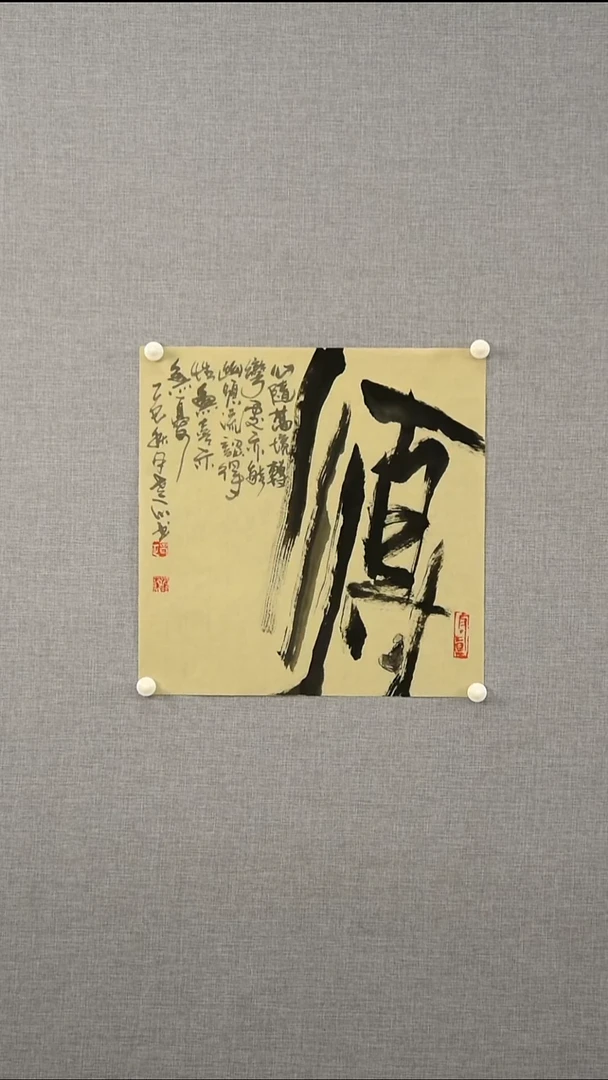 順
心隨萬境轉
處亦能
幽順流認得
性無喜亦
無憂
乙巳秋月